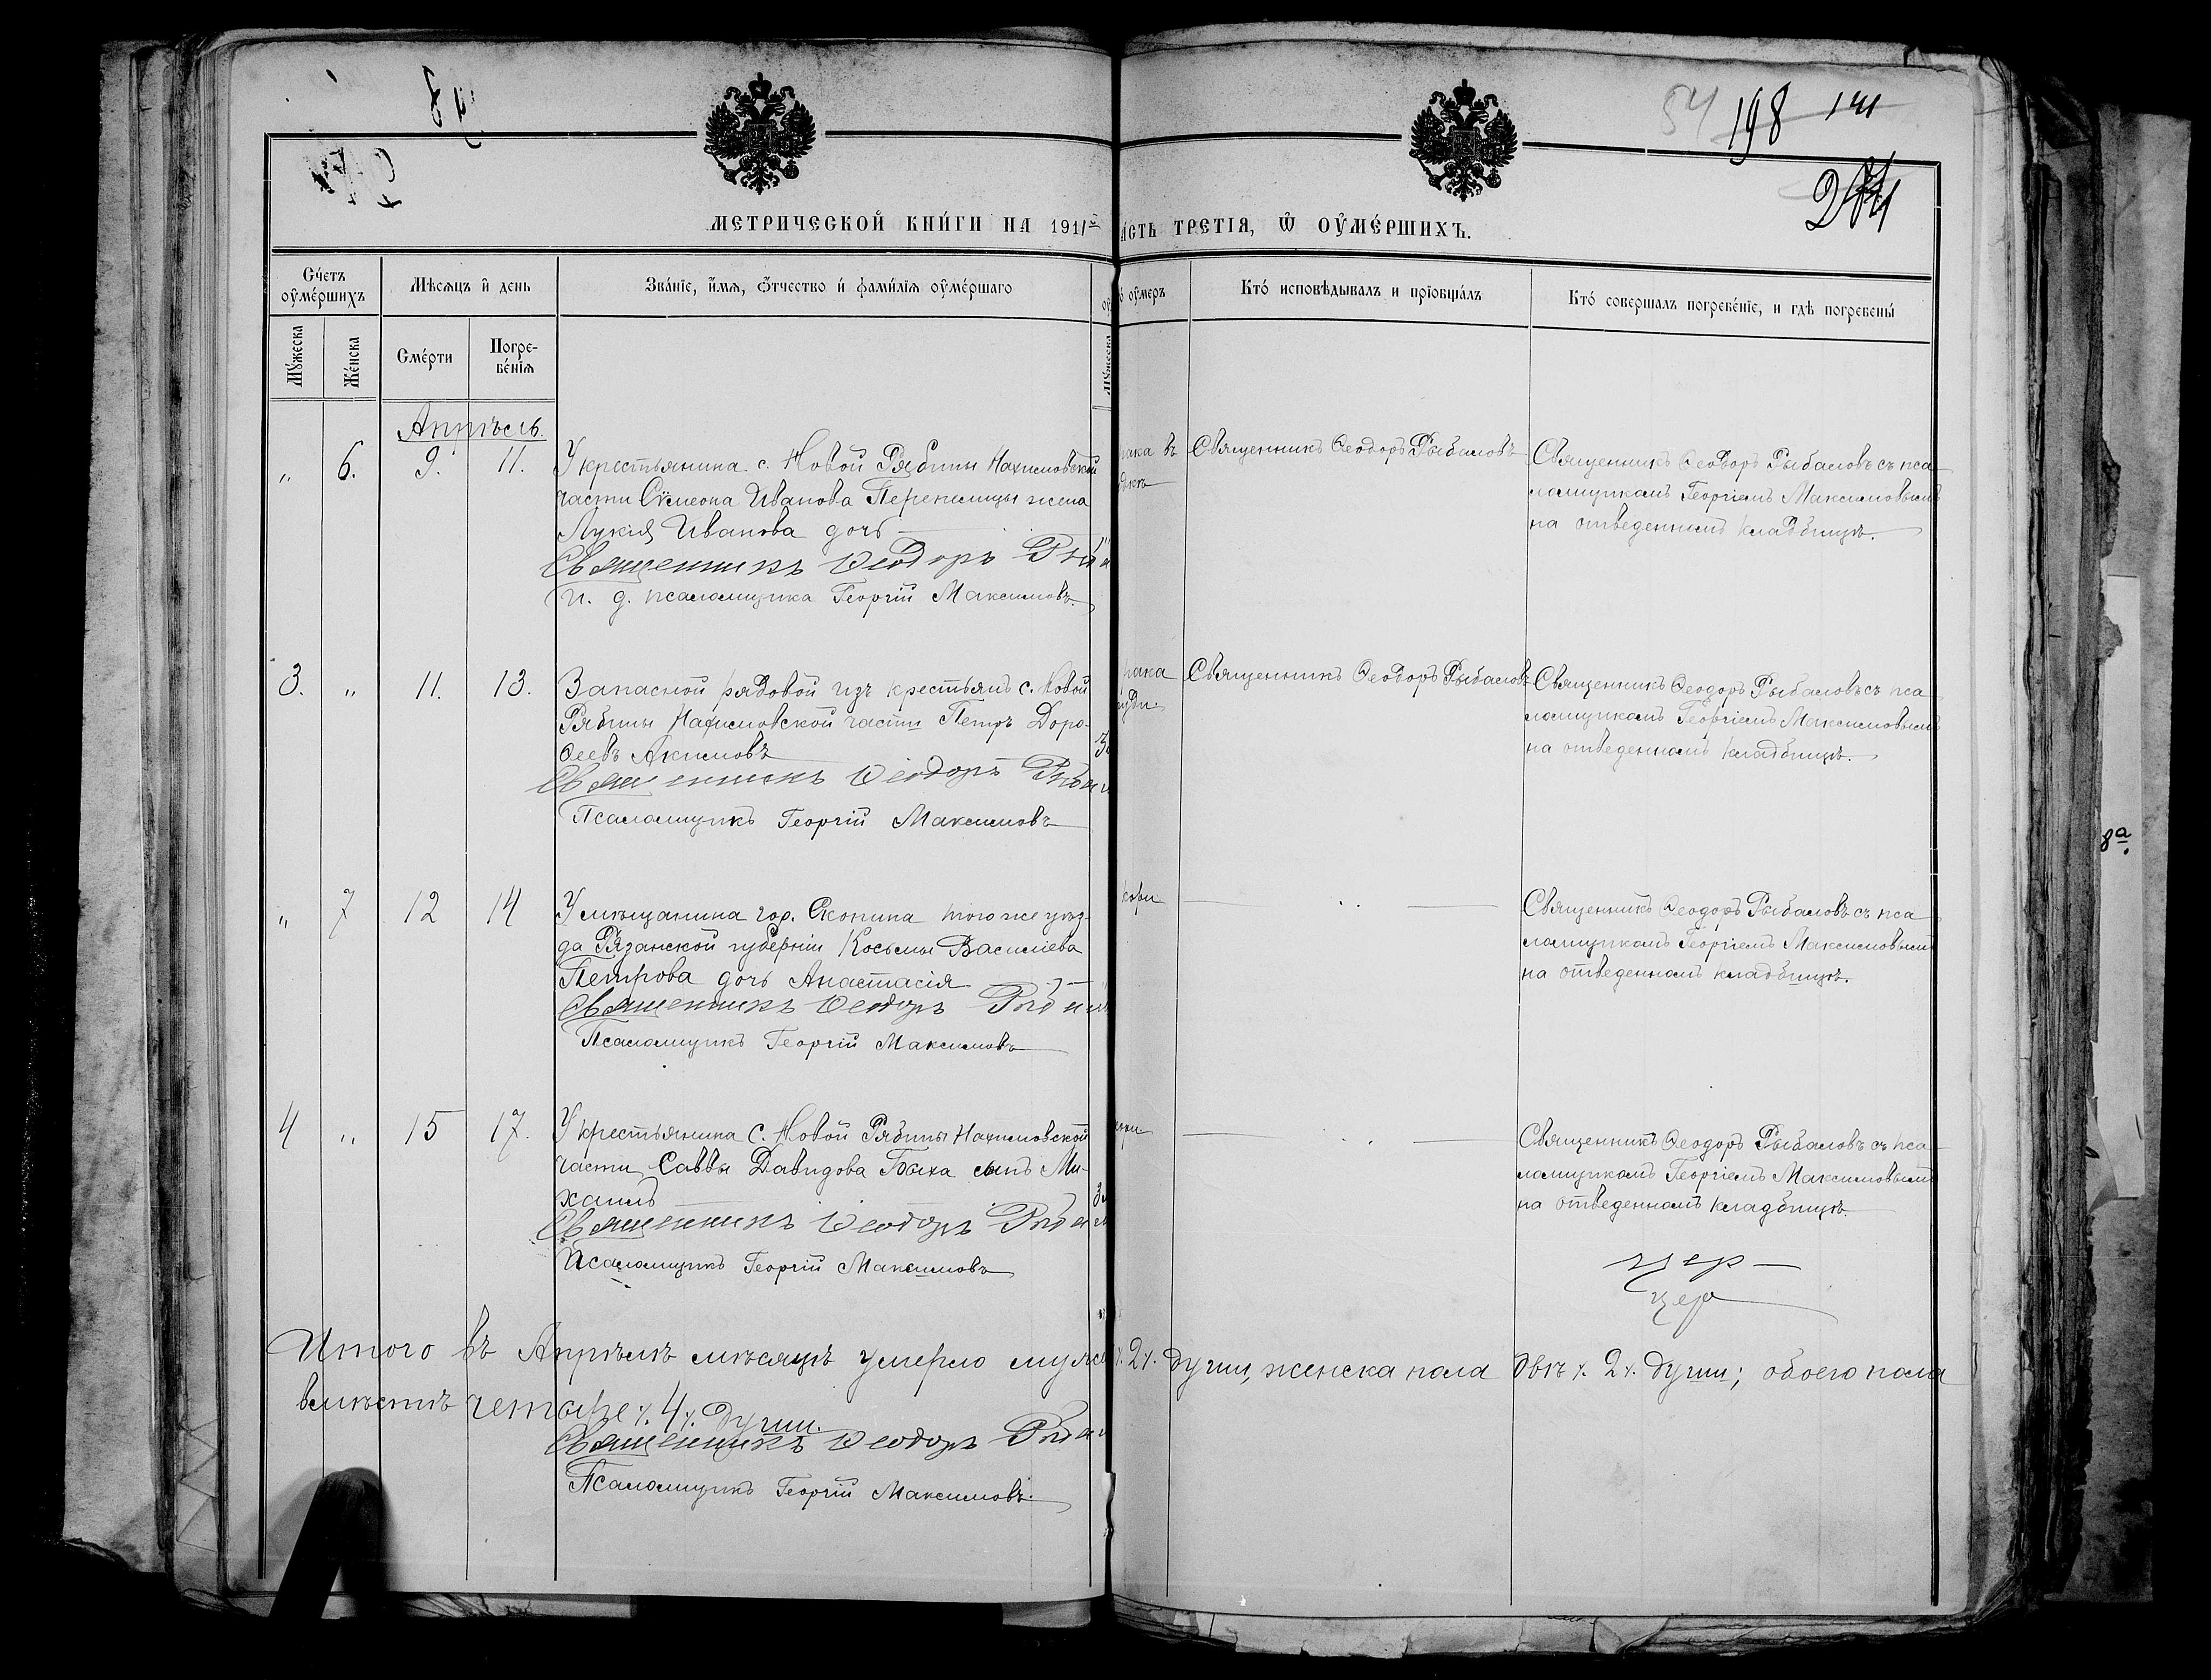 54 198 141
МЕТРИЧЕСКОЙ КНИ́ГИ НА 1911й
А́СТЬ ТРЕТІЯ, Ѿ ОУ҆МЕ́РШИХЪ.
Сче́тъ оу҆ме́ршихъ
Мѣсяцъ и҆ день
Зва́ніе, и҆мя, ѻ҆тчество и҆ фами́лїя оу҆ме́ршаго
оу҆меръ
Кто́ исповѣдывалъ и прїобща́лъ
Кто́ совершалъ погребе́ніе, и гдѣ погребены́
Мꙋ́жеска
Же́нска
Сме́рти
Погре-
бе́нїя
Мꙋ́жеска
Апрѣль.
„ 6. 9. 11. У крестьянина с. Новой Рябины Нахимовской
части Симеона Иванова Перепелицы жена
Лукія Иванова дочь
Священникъ Ѳеодоръ
И. д. псаломщика Георгій Максимовъ
Священникъ Ѳеодоръ Рыбаловъ
Священникъ Ѳеодоръ Рыбаловъ съ пса
ломщикомъ Георгіемъ Максимовымъ
на отведенномъ кладбищѣ.
3. „ 11. 13. Запасной рядовой изъ крестьянъ с. Новой
Рябины Нахимовской части Петръ Доро-
ѳеевъ Акимовъ
Священникъ Ѳеодоръ
Псаломщикъ Георгій Максимовъ
Священникъ Ѳеодоръ Рыбаловъ
Священникъ Ѳеодоръ Рыбаловъ съ пса
ломщикомъ Георгіемъ Максимовымъ
на отведенномъ кладбищѣ.
„ 7 12 14 У мѣщанина гор. Скопина того же уѣз-
да Рязанской губерніи Косьмы Василіева
Петрова дочь Анастасія
Священникъ Ѳеодоръ
Псаломщикъ Георгій Максимовъ
кори
Священникъ Ѳеодоръ Рыбаловъ съ пса
ломщикомъ Георгіемъ Максимовымъ
на отведенномъ кладбищѣ.
4 „ 15 17. У крестьянина с. Новой Рябины Нахимовской
части Саввы Давидова сынъ Ми-
хаилъ
Священникъ Ѳеодоръ
Псаломщикъ Георгій Максимовъ
Священникъ Ѳеодоръ Рыбаловъ съ пса
ломщикомъ Георгіемъ Максимовымъ
на отведенномъ кладбищѣ.
Итого въ Апрѣлѣ мѣсяцѣ умерло муж ٪ 2 ٪. души, женска пола двѣ ٪. 2 ٪. души; обоего пола
вмѣстѣ четыре ٪. 4 ٪. души.
Священникъ Ѳеодоръ
Псаломщикъ Георгій Максимовъ.
8а.